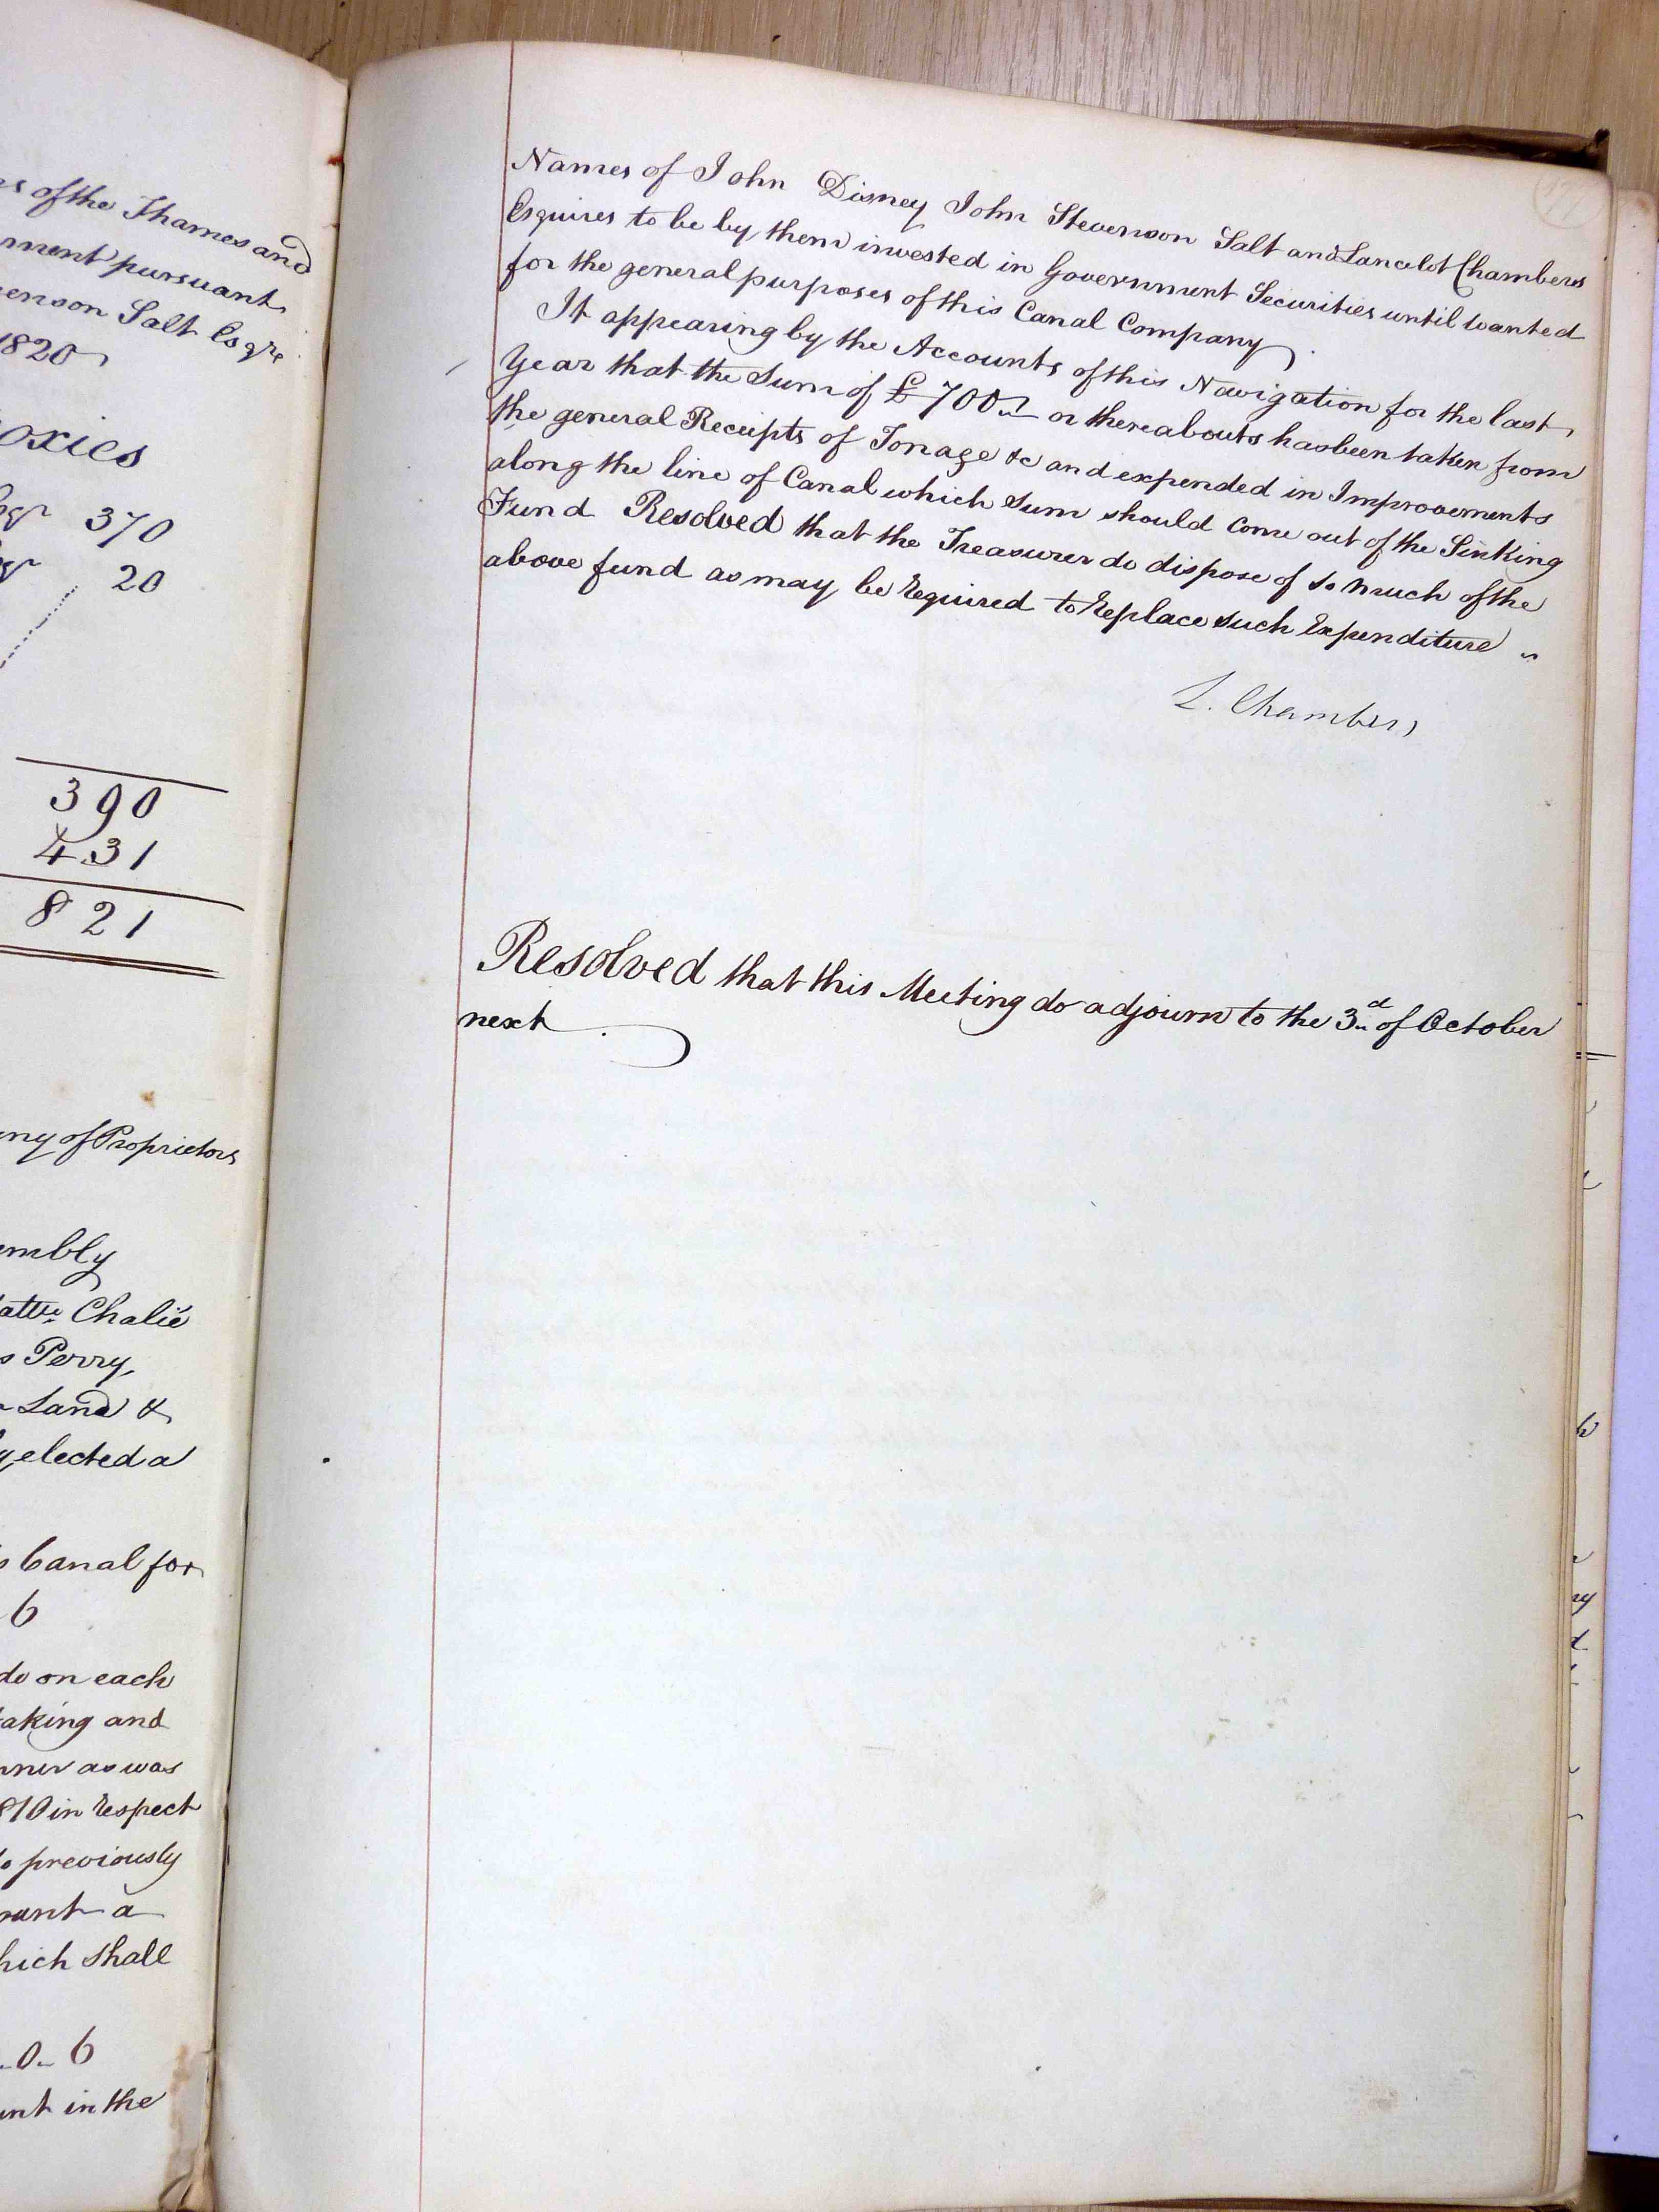 of the Thames and
ment pursuant
enson Salt Esqre
1820
oxies
370
20
390
431
821
ny of Proprietors
embly
Chalié
Perry,
Land &
elected a
Canal for
6
do on each
taking and
nner as was
810 in respect
previously
rant a
hich shall
0 - 6
unt in the
Names of John Disney John Stevenson Salt and Lancelot Chambers
Esquires to be by them invested in Government Securities until wanted
for the general purposes of this Canal Company
It appearing by the Accounts of this Navigation for the last
Year that the Sum of £700 or thereabouts has been taken from
the general Receipts of Tonage &c and expended in Improvements
along the line of Canal which Sum should come out of the Sinking
Fund Resolved that the Treasurer do dispose of so much of the
above fund as may be required to replace such Expenditure
L. Chambers
Resolved that this Meeting do adjourn to the 3d of October
next